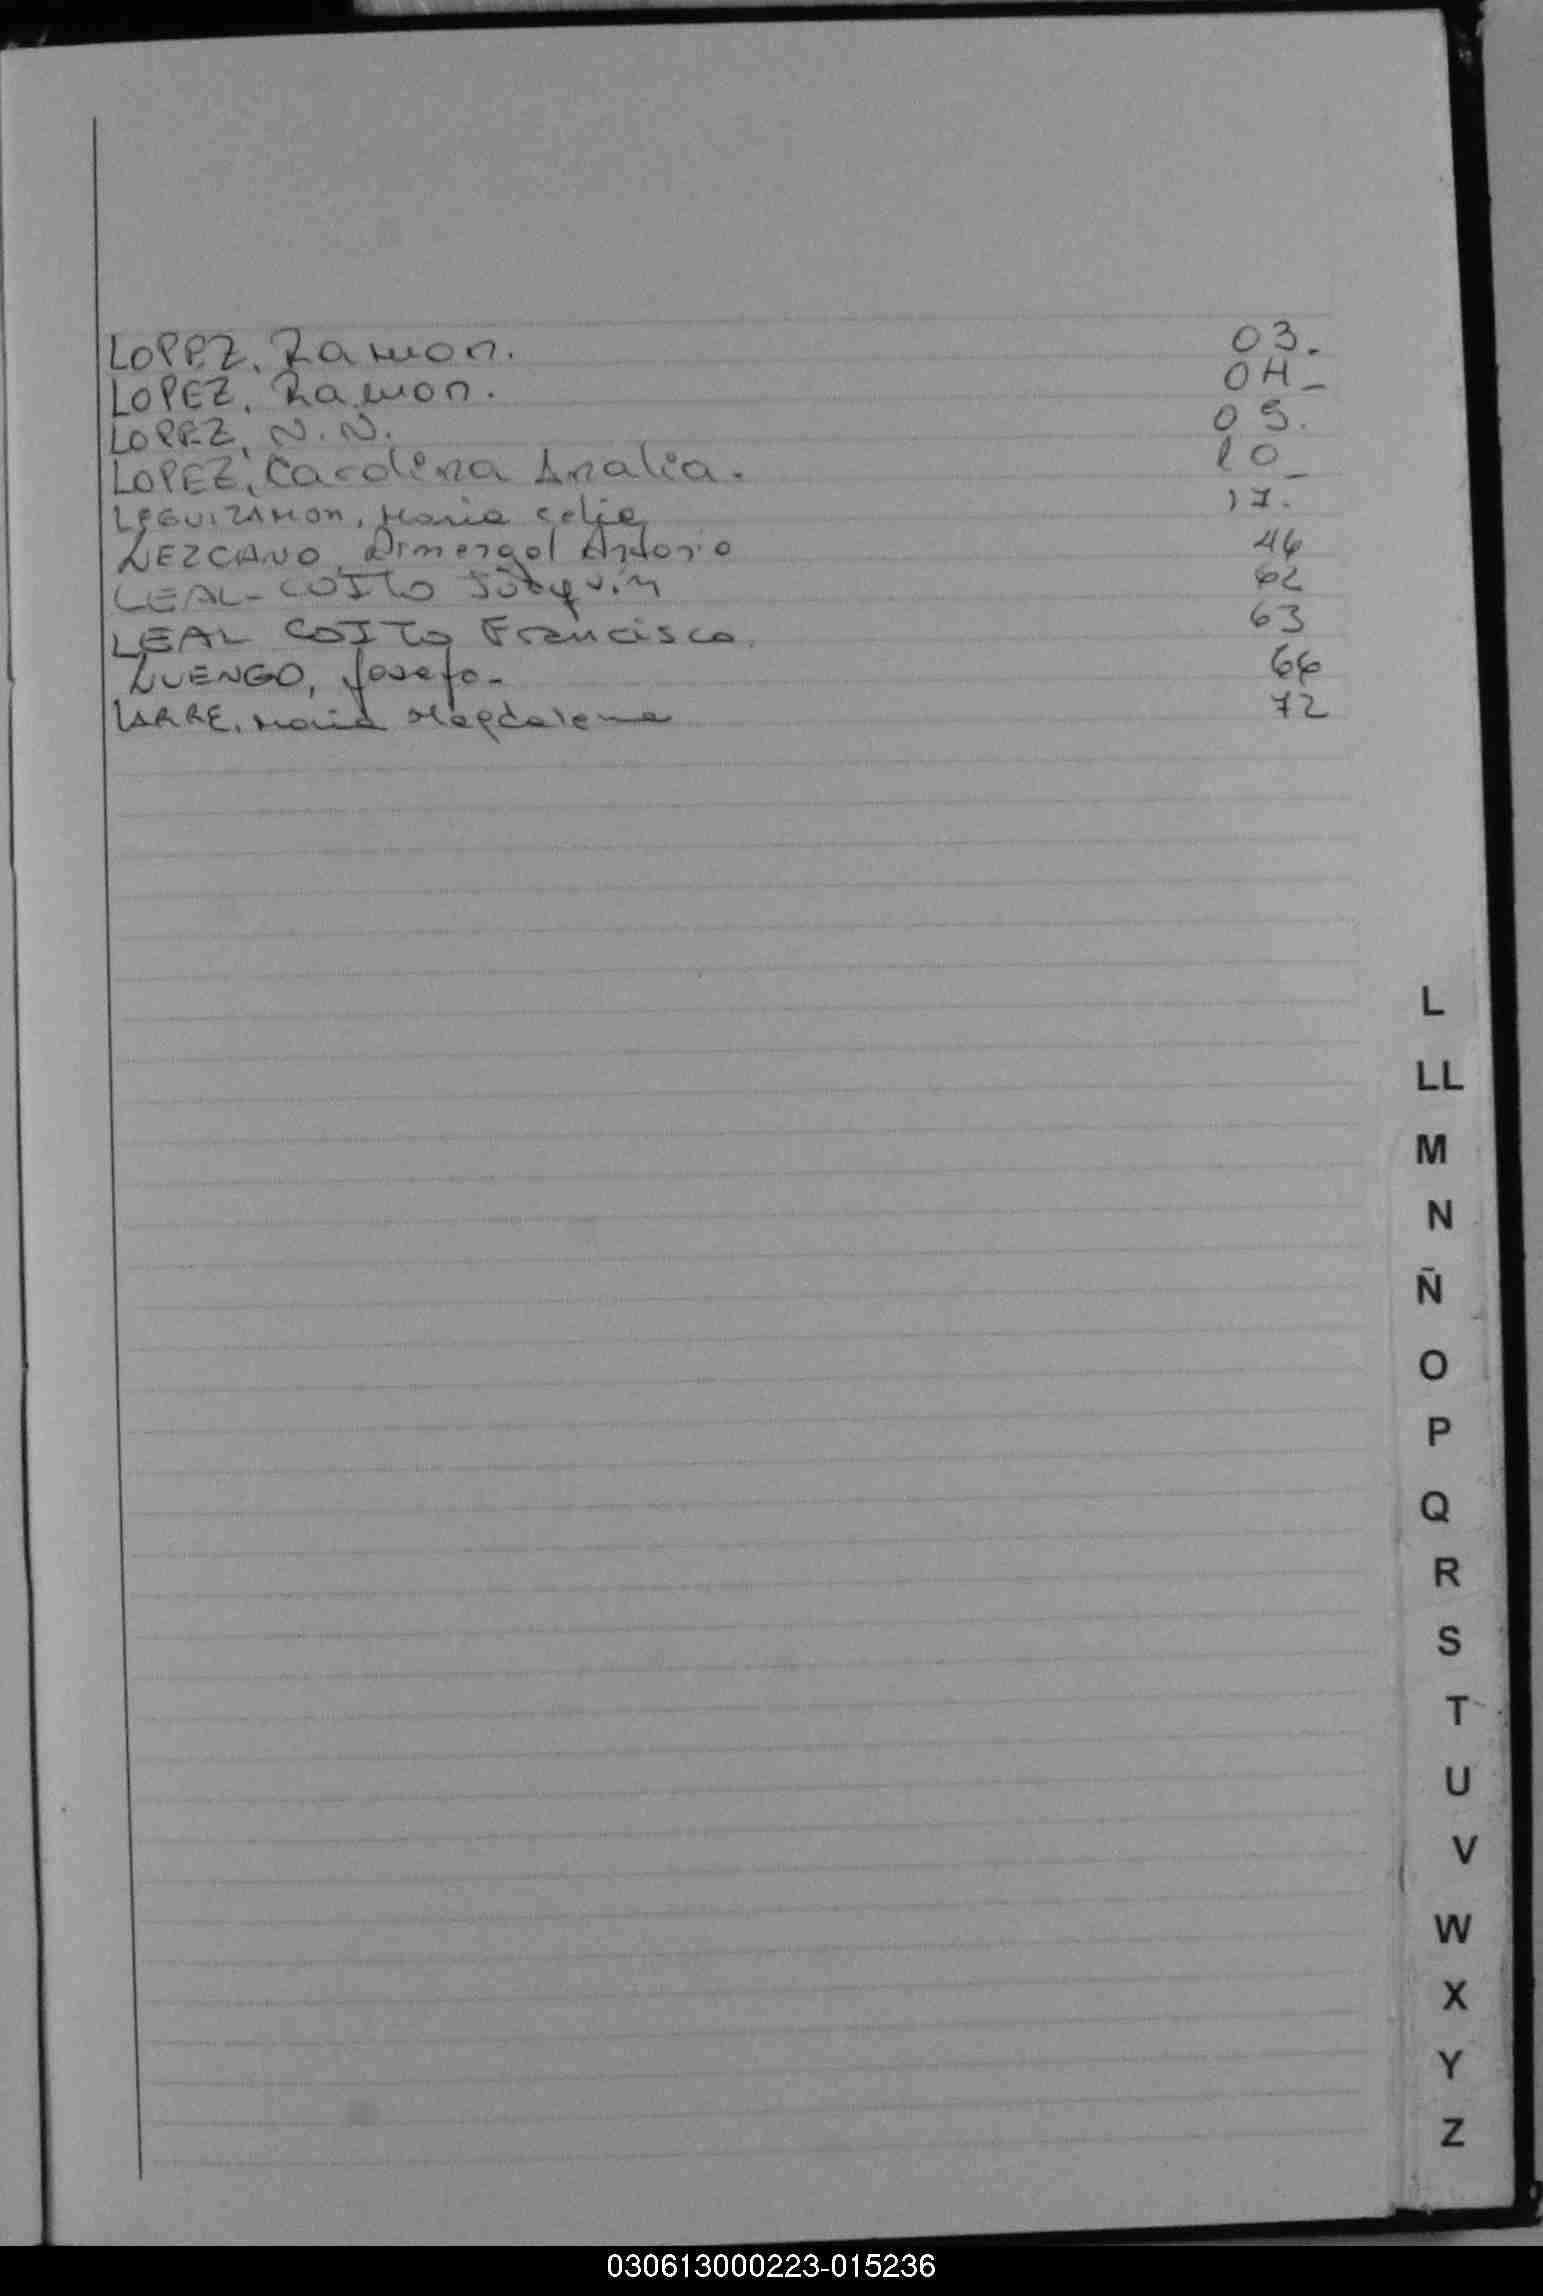 LOPEZ, Ramon. 03.
LOPEZ, Ramon. 04
LOPEZ, N.N. 05.
LOPEZ, Carolina Analia. 10
LEGUIZAMON, Maria Celia 17.
LEZCANO, Armengol Antonio 46
LEAL-COITO Joaquin 62
LEAL COITO Francisco. 63
LUENGO, Josefa- 66
LARRE, Maria Magdalena 72
L
LL
M
N
Ñ
O
P
Q
R
S
T
U
V
W
X
Y
Z
030613000223-015236